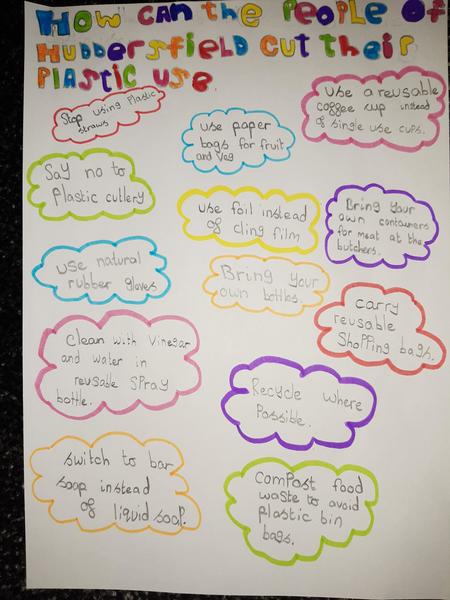 How can the People of
Huddersfield cut their
Plastic use
Stop using Plastic
straws
use paper
bags for fruit
and veg
use a reusable
coffee cup instead
of single use cups.
Say no to
Plastic cutlery
use foil instead
of cling film
Bring your
own containers
for meat at the
butchers.
use natural
rubber gloves
Bring your
own bottles.
carry
reusable
Shopping bags.
clean with Vinegar
and water in
reusable SPray
bottle.
Recycle where
Possible.
switch to bar
soap instead
of liquid soap.
comPost food
waste to avoid
plastic bin
bags.